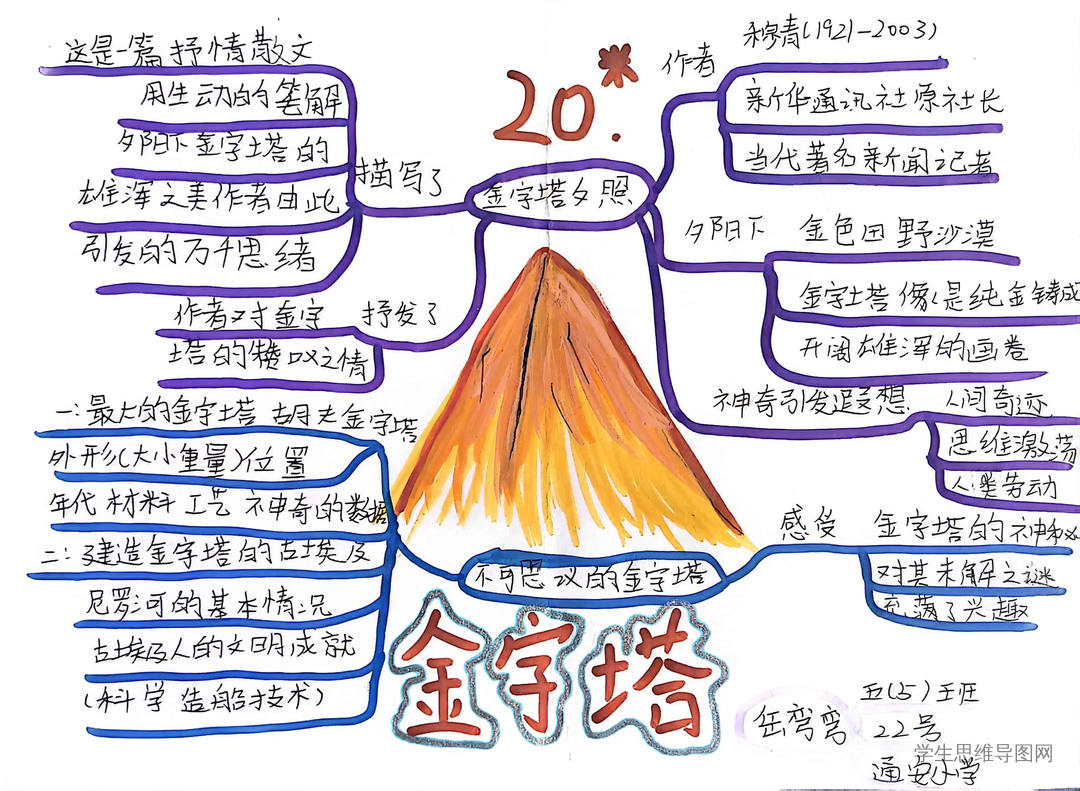 20.*
金字塔夕照
作者
穆青(1921-2003)
新华通讯社原社长
当代著名新闻记者
夕阳下
金色田野沙漠
金字塔像是纯金铸成
开阔雄浑的画卷
神奇引发遐想
人间奇迹
思维激荡
人类劳动
描写了
这是一篇抒情散文
用生动的笔解
夕阳下金字塔的
雄浑之美作者由此
引发的万千思绪
抒发了
作者对金字
塔的赞叹之情
不可思议的金字塔
一:最大的金字塔 胡夫金字塔
外形(大小重量)位置
年代材料工艺 神奇的数据
二:建造金字塔的古埃及
尼罗河的基本情况
古埃及人的文明成就
(科学 造船技术)
感受
金字塔的神秘
对其未解之谜
充满了兴趣
金字塔
岳弯弯
五(5)班
22号
通安小学
学生思维导图网